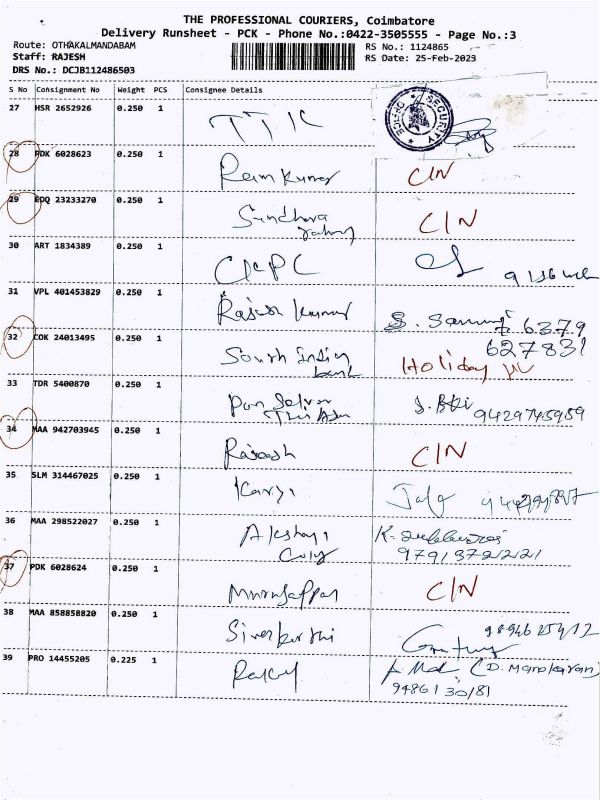 THE PROFESSIONAL COURIERS, Coimbatore
Delivery Runsheet - PCK - Phone No.:0422-3505555 - Page No.:3
Route: OTHAKALMANDABAM RS No.: 1124865
Staff: RAJESH RS Date: 25-Feb-2023
DRS No.: DCJB112486503
S No Consignment No Weight PCS Consignee Details
27 HSR 2652926 0.250 1
SECURITY
28 PDK 6028623 0.250 1
Ram Kumar CIN
29 EDQ 23233270 0.250 1
Sundhara CIN
30 ART 1834389 0.250 1
CPC
31 VPL 401453829 0.250 1
Rajesh Kumar
6379
32 COK 24013495 0.250 1 627831
South Indian Holiday
bank
33 TDR 5400870 0.250 1
Pon Selvan
9429745959
34 MAA 942703945 0.250 1
Rajesh CIN
35 SLM 314467025 0.250 1
36 MAA 298522027 0.250 1
Akshaya
9791372221
37 PDK 6028624 0.250 1
Murugappan CIN
38 MAA 858858820 0.250 1
39 PRO 14455205 0.225 1
(D. Manokaran)
9486130181